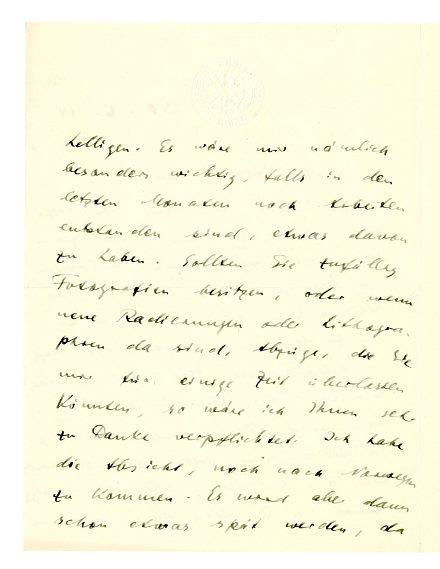 telligen. Es wäre mir nämlich
besonders wichtig, falls in den
letzten Monaten noch Arbeiten
entstanden sind, etwas davon
zu haben. Sollten Sie zufällig
Fotografien besitzen, oder wenn
neue Radierungen oder Lithogra-
phien da sind, Abzüge, die Sie
mir für einige Zeit überlassen
könnten, so wäre ich Ihnen sehr
zu Danke verpflichtet. Ich habe
die Absicht, noch nach Norwegen
zu kommen. Es wird aber dann
schon etwas spät werden, da